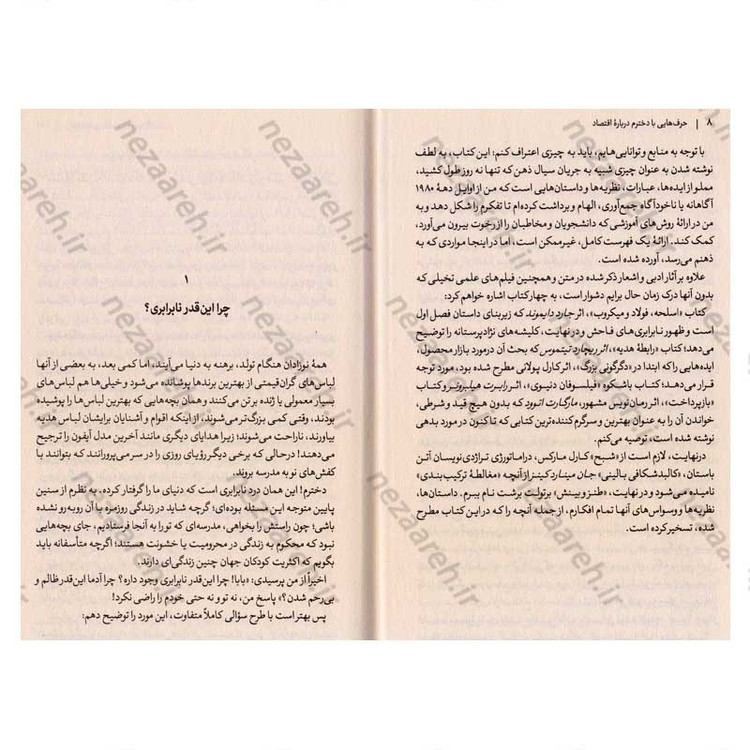 ۸ | حرف‌هایی با دخترم دربارهٔ اقتصاد
با توجه به منابع و توانایی‌هایم، باید به چیزی اعتراف کنم: این کتاب، به لطف
نوشته شدن به عنوان چیزی شبیه به جریان سیال ذهن که تنها نه روز طول کشید،
مملو از ایده‌ها، عبارات، نظریه‌ها و داستان‌هایی است که من از اوایل دههٔ ۱۹۸۰
آگاهانه یا ناخودآگاه جمع‌آوری، الهام و برداشت کرده‌ام تا تفکرم را شکل دهد و به
من در ارائهٔ روش‌های آموزشی که دانشجویان و مخاطبان را از رخوت بیرون می‌آورد،
کمک کند. ارائهٔ یک فهرست کامل، غیرممکن است، اما در اینجا مواردی که به
ذهنم می‌رسد، آورده شده است.
علاوه بر آثار ادبی و اشعار ذکر شده در متن و همچنین فیلم‌های علمی تخیلی که
بدون آنها درک زمان حال برایم دشوار است، به چهار کتاب اشاره خواهم کرد:
کتاب «اسلحه، فولاد و میکروب»، اثر جارد دایموند که زیربنای داستان فصل اول
است و ظهور نابرابری‌های فاحش و در نهایت، کلیشه‌های نژادپرستانه را توضیح
می‌دهد؛ کتاب «رابطهٔ هدیه»، اثر ریچارد تیتموس که بحث آن درمورد بازار محصول،
ایده‌هایی را که ابتدا در «دگرگونی بزرگ»، اثر کارل پولانی مطرح شده بود، مورد توجه
قرار می‌دهد؛ کتاب باشکوه «فیلسوفان دنیوی»، اثر رابرت هیلبرونر و کتاب
«بازپرداخت»، اثر رمان‌نویس مشهور، مارگارت اتوود که بدون هیچ قید و شرطی،
خواندن آن را به عنوان بهترین و سرگرم کننده‌ترین کتابی که تاکنون در مورد بدهی
نوشته شده است، توصیه می‌کنم.
درنهایت، لازم است از «شبح» کارل مارکس، دراماتورژی تراژدی‌نویسان آتن
باستان، «کالبدشکافی بالینی» جان مینارد کینز از آنچه «مغالطهٔ ترکیب‌بندی»
نامیده می‌شود و در نهایت، «طنز و بینش» برتولت برشت نام ببرم. داستان‌ها،
نظریه‌ها و وسواس‌های آنها تمام افکارم، از جمله آنچه را که در این کتاب مطرح
شده، تسخیر کرده است.
۱
چرا این‌قدر نابرابری؟
همهٔ نوزادان هنگام تولد، برهنه به دنیا می‌آیند، اما کمی بعد، به بعضی از آنها
لباس‌های گران‌قیمتی از بهترین برندها پوشانده می‌شود و خیلی‌ها هم لباس‌های
بسیار معمولی یا ژنده بر تن می‌کنند و همان بچه‌هایی که بهترین لباس‌ها را پوشیده
بودند، وقتی کمی بزرگ‌تر می‌شوند، از اینکه اقوام و آشنایان برایشان لباس هدیه
بیاورند، ناراحت می‌شوند؛ زیرا هدایای دیگری مانند آخرین مدل آیفون را ترجیح
می‌دهند! درحالی که برخی دیگر رؤیای روزی را در سر می‌پرورانند که بتوانند با
کفش‌های نو به مدرسه بروند.
دخترم! این همان درد نابرابری است که دنیای ما را گرفتار کرده. به نظرم از سنین
پایین متوجه این مسئله بوده‌ای؛ گرچه شاید در زندگی روزمره با آن روبه‌رو نشده
باشی؛ چون راستش را بخواهی، مدرسه‌ای که تو را به آنجا فرستادیم، جای بچه‌هایی
نبود که محکوم به زندگی در محرومیت یا خشونت هستند؛ اگرچه متأسفانه باید
بگویم که اکثریت کودکان جهان چنین زندگی‌ای دارند.
اخیراً از من پرسیدی: «بابا! چرا این‌قدر نابرابری وجود داره؟ چرا آدما این‌قدر ظالم و
بی‌رحم شدن؟» پاسخ من، نه تو و نه حتی خودم را راضی نکرد!
پس بهتر است با طرح سؤالی کاملاً متفاوت، این مورد را توضیح دهم:
nezaareh.ir